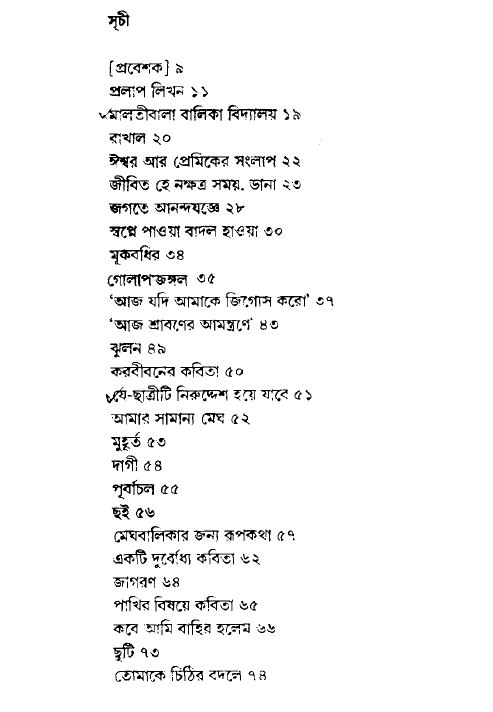 সূচী
[প্রবেশক] ৯
প্রলাপ লিখন ১১
মালতীবালা বালিকা বিদ্যালয় ১৯
রাখাল ২০
ঈশ্বর আর প্রেমিকের সংলাপ ২২
জীবিত হে নক্ষত্র সময়, ডানা ২৩
জগতে আনন্দযজ্ঞে ২৮
স্বপ্নে পাওয়া বাদল হাওয়া ৩০
মূকবধির ৩৪
গোলাপজঙ্গল ৩৫
‘আজ যদি আমাকে জিগ্যেস করো’ ৩৭
‘আজ শ্রাবণের আমন্ত্রণে’ ৪৩
ঝুলন ৪৯
করবীবনের কবিতা ৫০
যে-ছাত্রীটি নিরুদ্দেশ হয়ে যাবে ৫১
আমার সামান্য মেঘ ৫২
মুহূর্ত ৫৩
দাগী ৫৪
পূর্বাচল ৫৫
ছই ৫৬
মেঘবালিকার জন্য রূপকথা ৫৭
একটি দুর্বোধ্য কবিতা ৬২
জাগরণ ৬৪
পাখির বিষয়ে কবিতা ৬৫
কবে আমি বাহির হলেম ৬৬
ছুটি ৭৩
তোমাকে চিঠির বদলে ৭৪